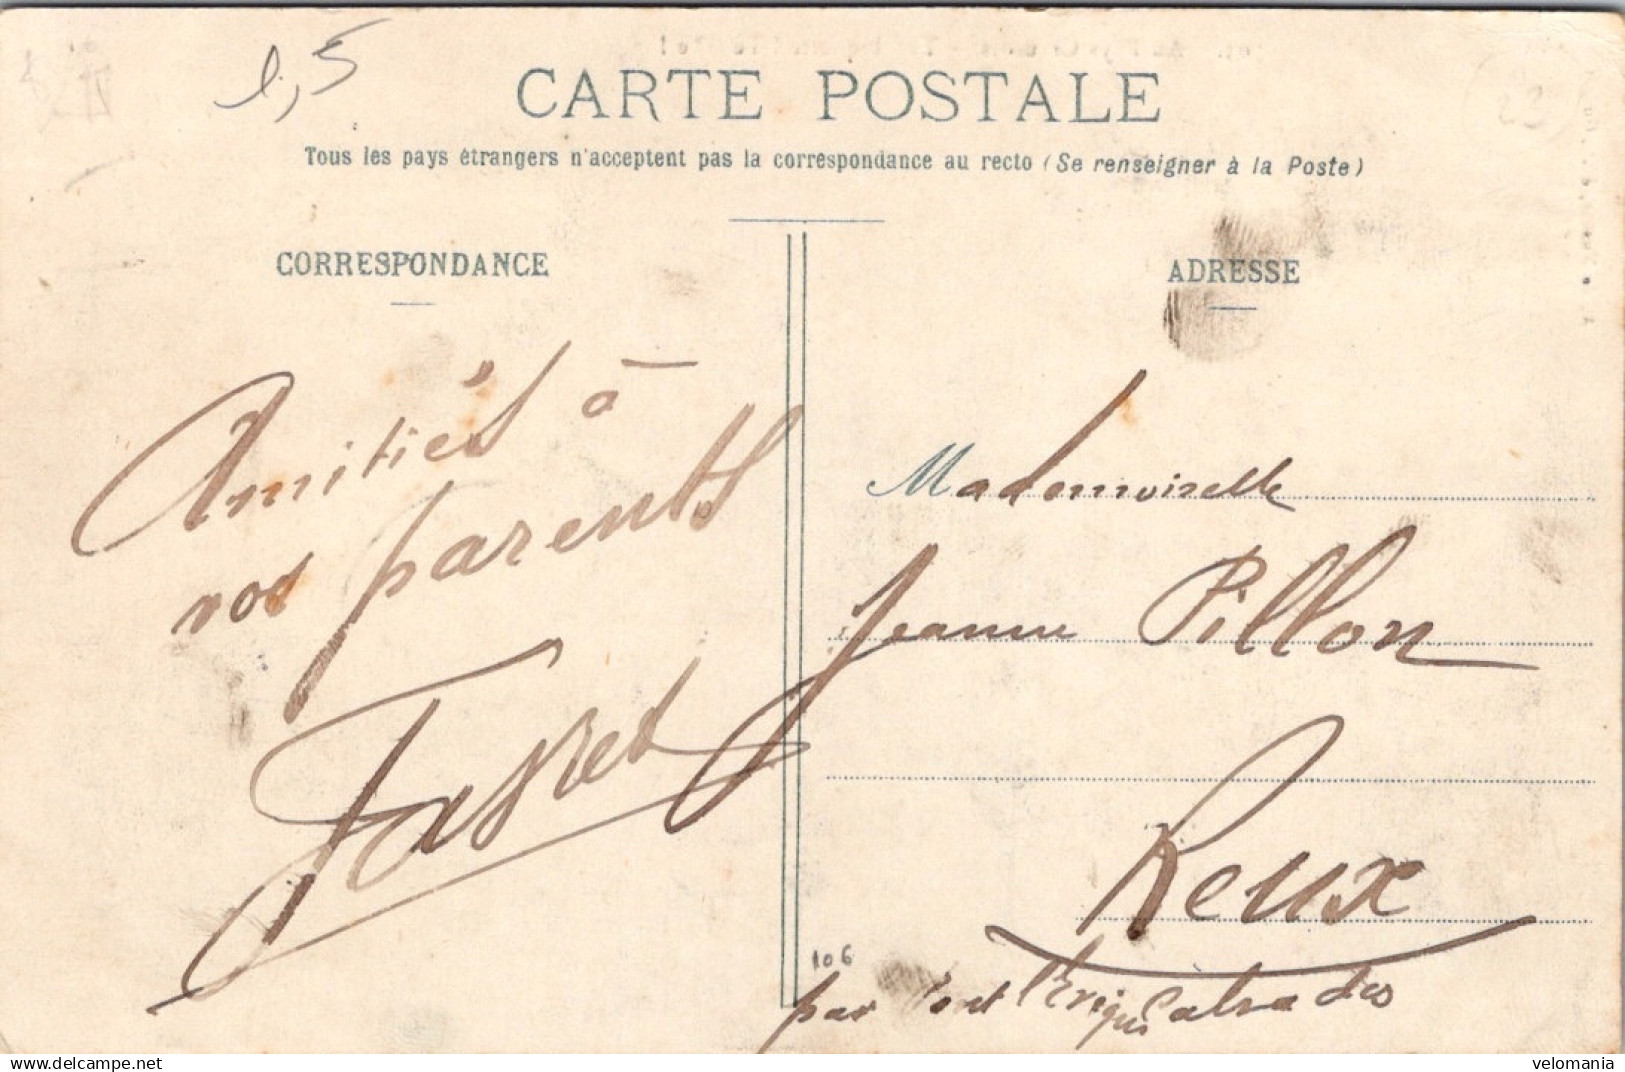 1,5
CARTE POSTALE
Tous les pays étrangers n'acceptent pas la correspondance au recto (Se renseigner à la Poste)
CORRESPONDANCE
Amitiés à
vos parents
ADRESSE
Mademoiselle
Jeanne Pillon
Reux
106
par Pont l'Evêque Calvados
www.delcampe.net
velomania